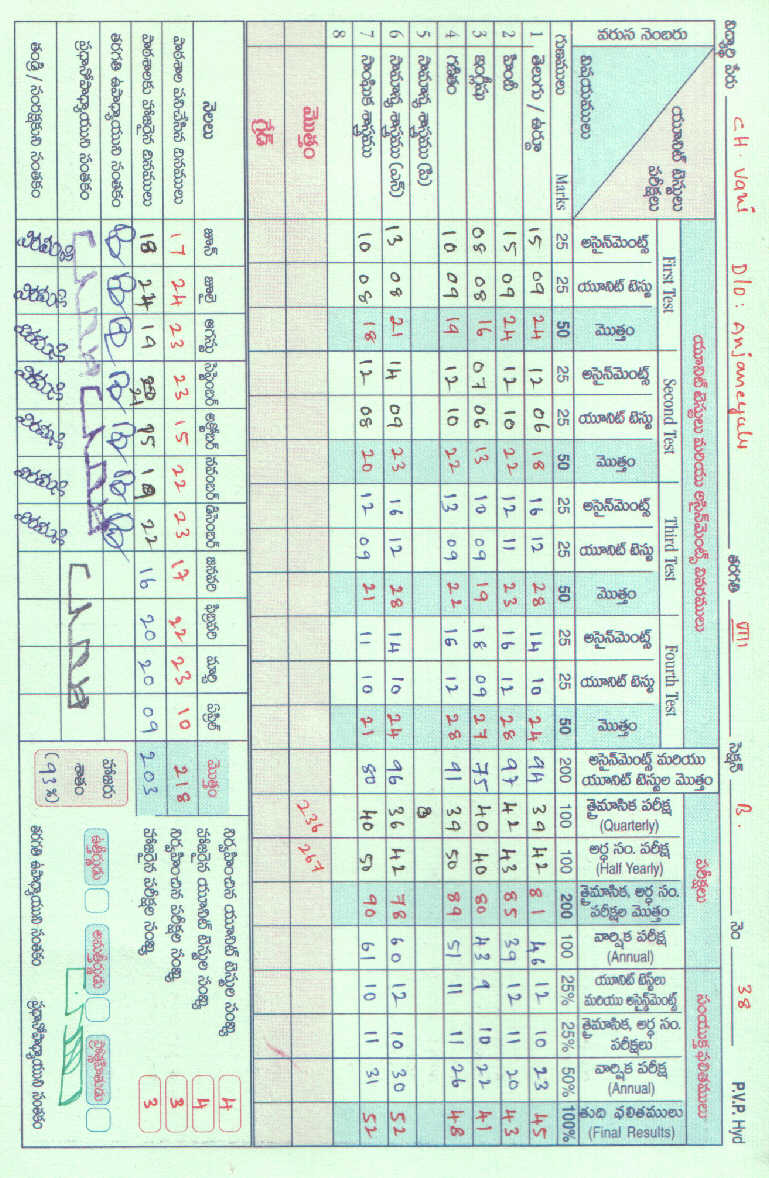 విద్యార్థి పేరు CH. Vani D/O: Anjaneyulu తరగతి VIII సెక్షన్ B. నెం 38 P.V.P. Hyd
వరుస నెంబరు
యూనిట్ టెస్టులు పరీక్షలు
విషయములు
యూనిట్ టెస్టులు మరియు అసైన్‌మెంట్స్ వివరములు
పరీక్షలు
సంయుక్త ఫలితములు
First Test Second Test Third Test Fourth Test
అసైన్‌మెంట్స్ యూనిట్ టెస్టు మొత్తం అసైన్‌మెంట్స్ యూనిట్ టెస్టు మొత్తం అసైన్‌మెంట్స్ యూనిట్ టెస్టు మొత్తం అసైన్‌మెంట్స్ యూనిట్ టెస్టు మొత్తం
అసైన్‌మెంట్స్ మరియు యూనిట్ టెస్టుల మొత్తం
త్రైమాసిక పరీక్ష (Quarterly)
అర్ధ సం. పరీక్ష (Half Yearly)
త్రైమాసిక, అర్ధ సం. పరీక్షల మొత్తం
వార్షిక పరీక్ష (Annual)
యూనిట్ టెస్టులు మరియు అసైన్‌మెంట్స్
త్రైమాసిక, అర్ధ సం. పరీక్షలు
వార్షిక పరీక్ష (Annual)
తుది ఫలితములు (Final Results)
గుణములు Marks 25 25 50 25 25 50 25 25 50 25 25 50 200 100 100 200 100 25% 25% 50% 100%
1 తెలుగు / ఉర్దూ 15 09 24 12 06 18 16 12 28 14 10 24 94 39 42 81 46 12 10 23 45
2 హిందీ 15 09 24 12 10 22 12 11 23 16 12 28 97 42 43 85 39 12 11 20 43
3 ఇంగ్లీషు 08 08 16 07 06 13 10 09 19 18 09 27 75 40 40 80 43 9 10 22 41
4 గణితం 10 09 19 12 10 22 13 09 22 16 12 28 91 39 50 89 51 11 11 26 48
5 సామాన్య శాస్త్రము (పి)
6 సామాన్య శాస్త్రము (ఎన్) 13 08 21 14 09 23 16 12 28 14 10 24 96 36 42 78 60 12 10 30 52
7 సాంఘిక శాస్త్రము 10 08 18 12 08 20 12 09 21 11 10 21 80 40 50 90 61 10 11 31 52
8
మొత్తం 236 267
గ్రేడ్
నెలలు జూన్ జూలై ఆగస్టు సెప్టెంబర్ అక్టోబర్ నవంబర్ డిసెంబర్ జనవరి ఫిబ్రవరి మార్చి ఏప్రిల్ మొత్తం
పాఠశాల పనిచేసిన దినములు 17 24 23 23 15 22 23 17 22 23 10 218
పాఠశాలకు హాజరైన దినములు 18 24 19 21 15 22 16 20 20 09 203
తరగతి ఉపాధ్యాయుని సంతకం
ప్రధానోపాధ్యాయుని సంతకం
తండ్రి / సంరక్షకుని సంతకం
హాజరు శాతం (93%)
నిర్వహించిన యూనిట్ టెస్టుల సంఖ్య 4
హాజరైన యూనిట్ టెస్టుల సంఖ్య 4
నిర్వహించిన పరీక్షల సంఖ్య 3
హాజరైన పరీక్షల సంఖ్య 3
ఉత్తీర్ణుడు అనుత్తీర్ణుడు ప్రోత్సాహితుడు
తరగతి ఉపాధ్యాయుని సంతకం ప్రధానోపాధ్యాయుని సంతకం